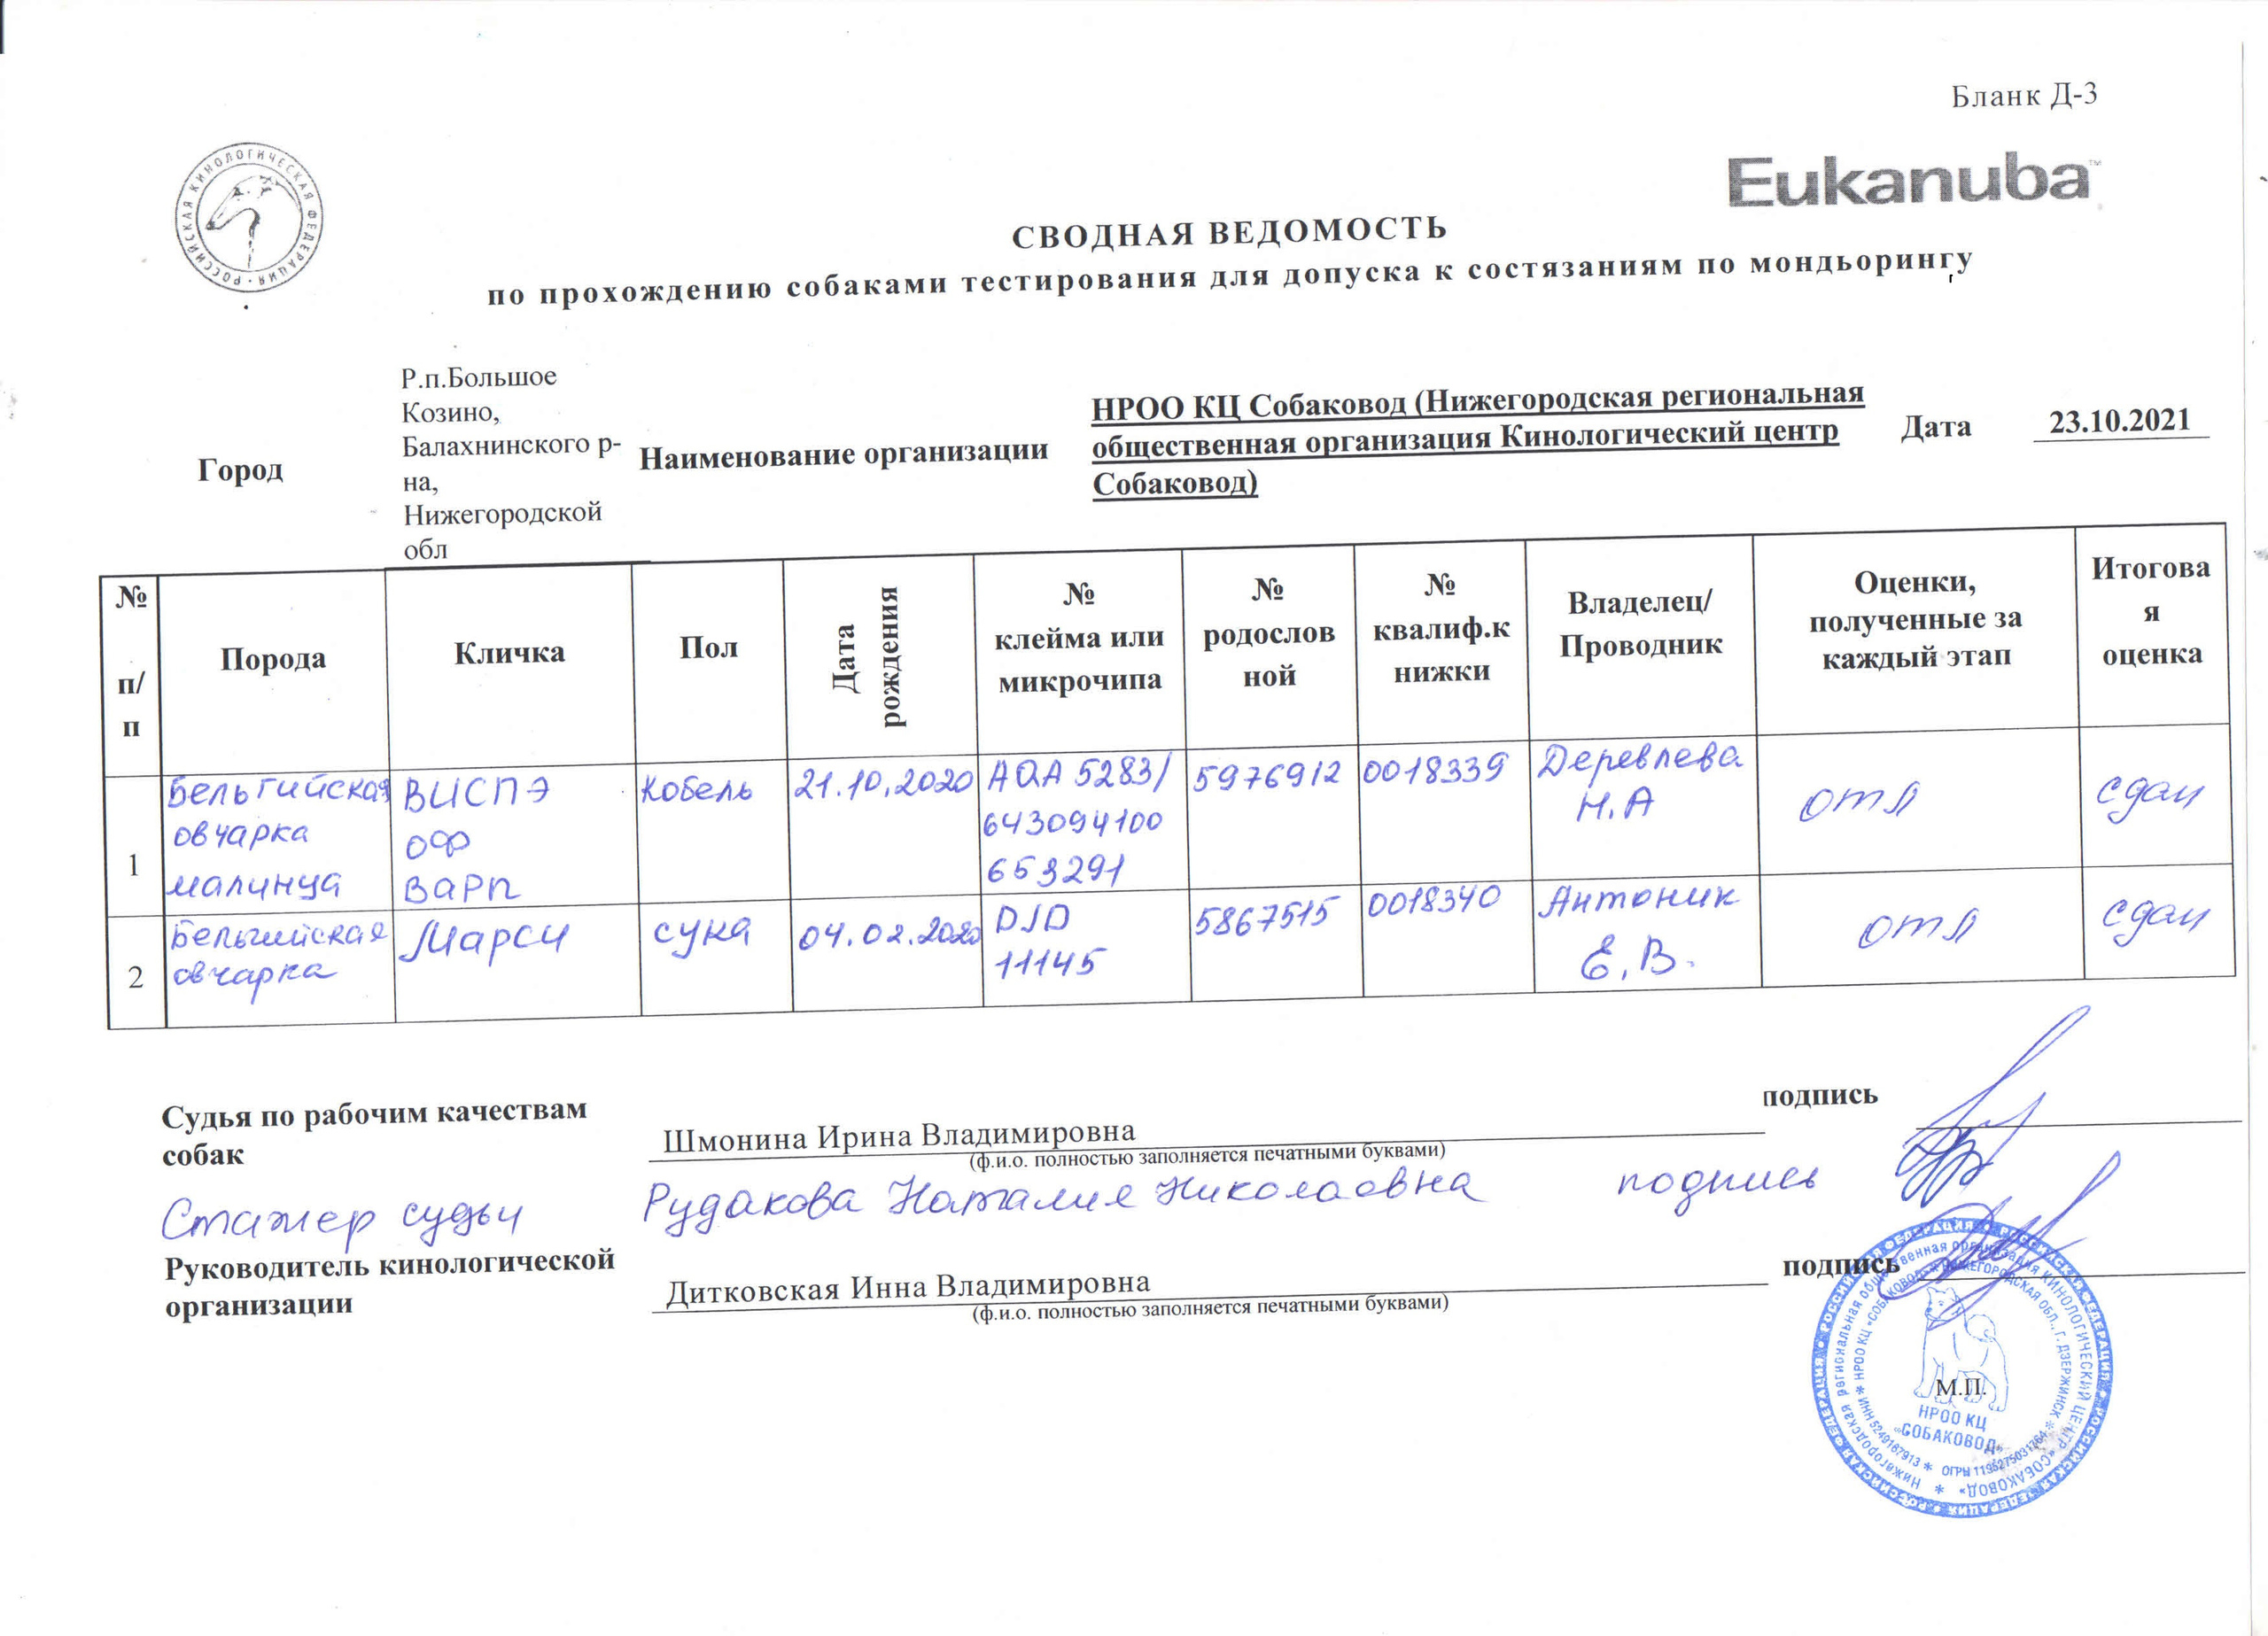 Бланк Д-3
РОССИЙСКАЯ КИНОЛОГИЧЕСКАЯ ФЕДЕРАЦИЯ
Eukanuba™
СВОДНАЯ ВЕДОМОСТЬ
по прохождению собаками тестирования для допуска к состязаниям по мондьорингу
Город
Р.п.Большое
Козино,
Балахнинского р-
на,
Нижегородской
обл
Наименование организации
НРОО КЦ Собаковод (Нижегородская региональная
общественная организация Кинологический центр
Собаковод)
Дата
23.10.2021
№
п/
п
Порода
Кличка
Пол
Дата
рождения
№
клейма или
микрочипа
№
родослов
ной
№
квалиф.к
нижки
Владелец/
Проводник
Оценки,
полученные за
каждый этап
Итогова
я
оценка
1
Бельгийская
овчарка
малинуа
ВИСПЭ
ОФ
ВАРП
Кобель
21.10.2020
AQA 5283/
643094100
653291
5976912
0018339
Деревлева
Н.А
отл
сдал
2
Бельгийская
овчарка
Марси
сука
04.02.2020
DJD
11145
5867515
0018340
Антоник
Е.В.
отл
сдал
Судья по рабочим качествам
собак
Шмонина Ирина Владимировна
(ф.и.о. полностью заполняется печатными буквами)
подпись
Стажер судьи
Рудакова Наталия Николаевна
подпись
Руководитель кинологической
организации
Дитковская Инна Владимировна
(ф.и.о. полностью заполняется печатными буквами)
подпись
М.П.
РОССИЙСКАЯ КИНОЛОГИЧЕСКАЯ ФЕДЕРАЦИЯ
Нижегородская региональная общественная организация КИНОЛОГИЧЕСКИЙ ЦЕНТР «СОБАКОВОД»
НРОО КЦ «СОБАКОВОД» * НИЖЕГОРОДСКАЯ ОБЛ., Г. ДЗЕРЖИНСК *
ИНН 5249167913 *
НРОО КЦ
«СОБАКОВОД»